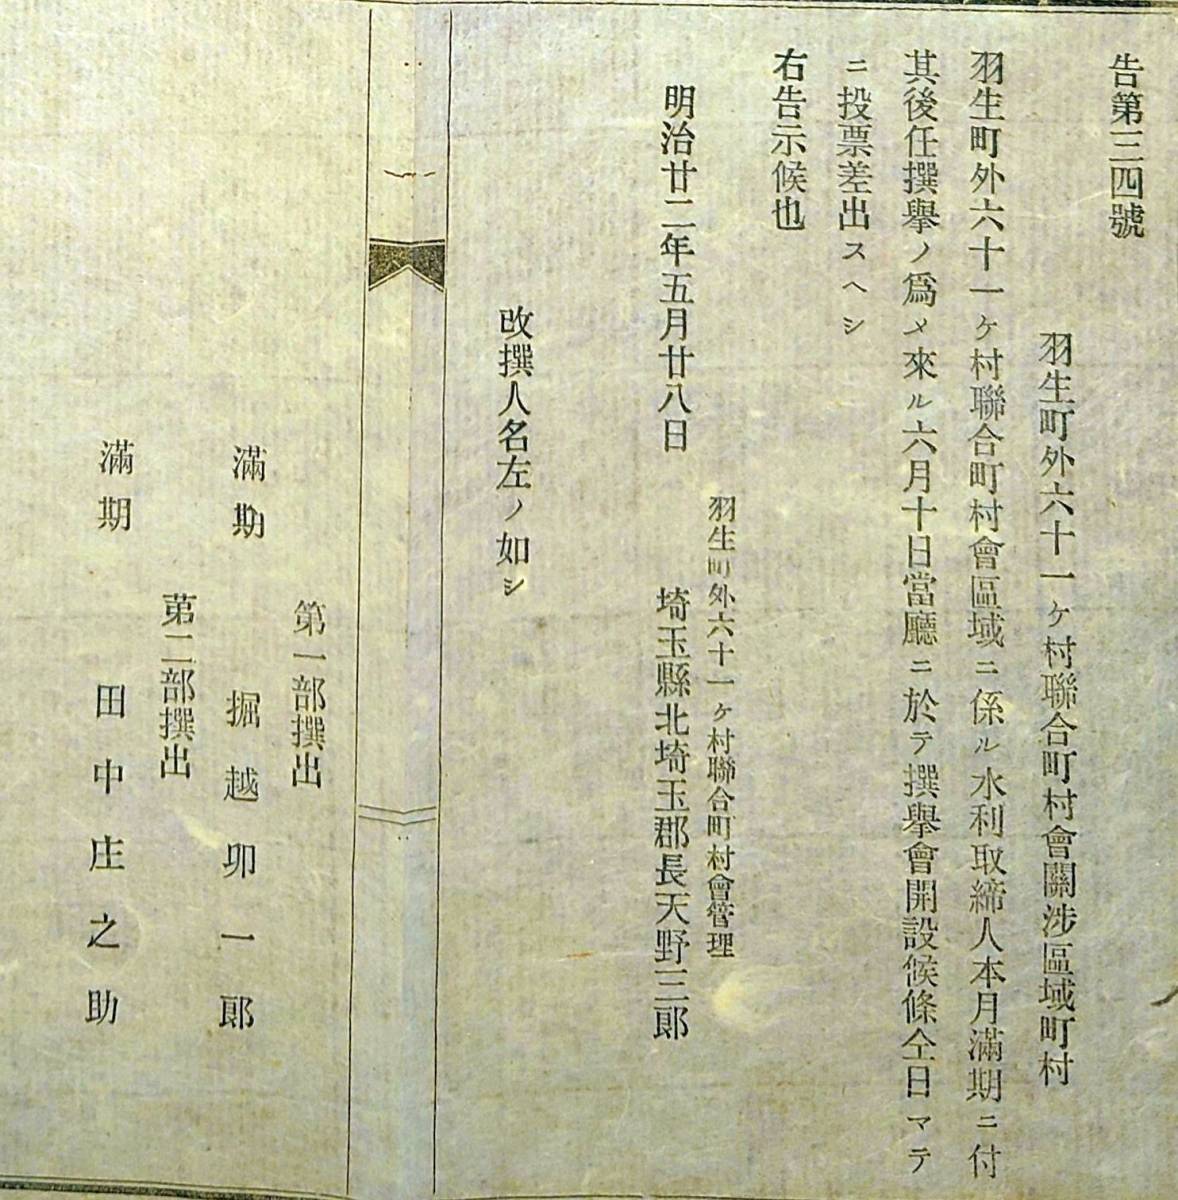 告第三四號
羽生町外六十一ヶ村聯合町村會關涉區域町村
羽生町外六十一ヶ村聯合町村會區域ニ係ル水利取締人本月滿期ニ付
其後任撰擧ノ爲メ來ル六月十日當廳ニ於テ撰擧會開設候條仝日マテ
ニ投票差出スヘシ
右告示候也
羽生町外六十一ヶ村聯合町村會管理
明治廿二年五月廿八日 埼玉縣北埼玉郡長天野三郎
改撰人名左ノ如シ
第一部撰出
滿期 掘越卯一郎
第二部撰出
滿期 田中庄之助